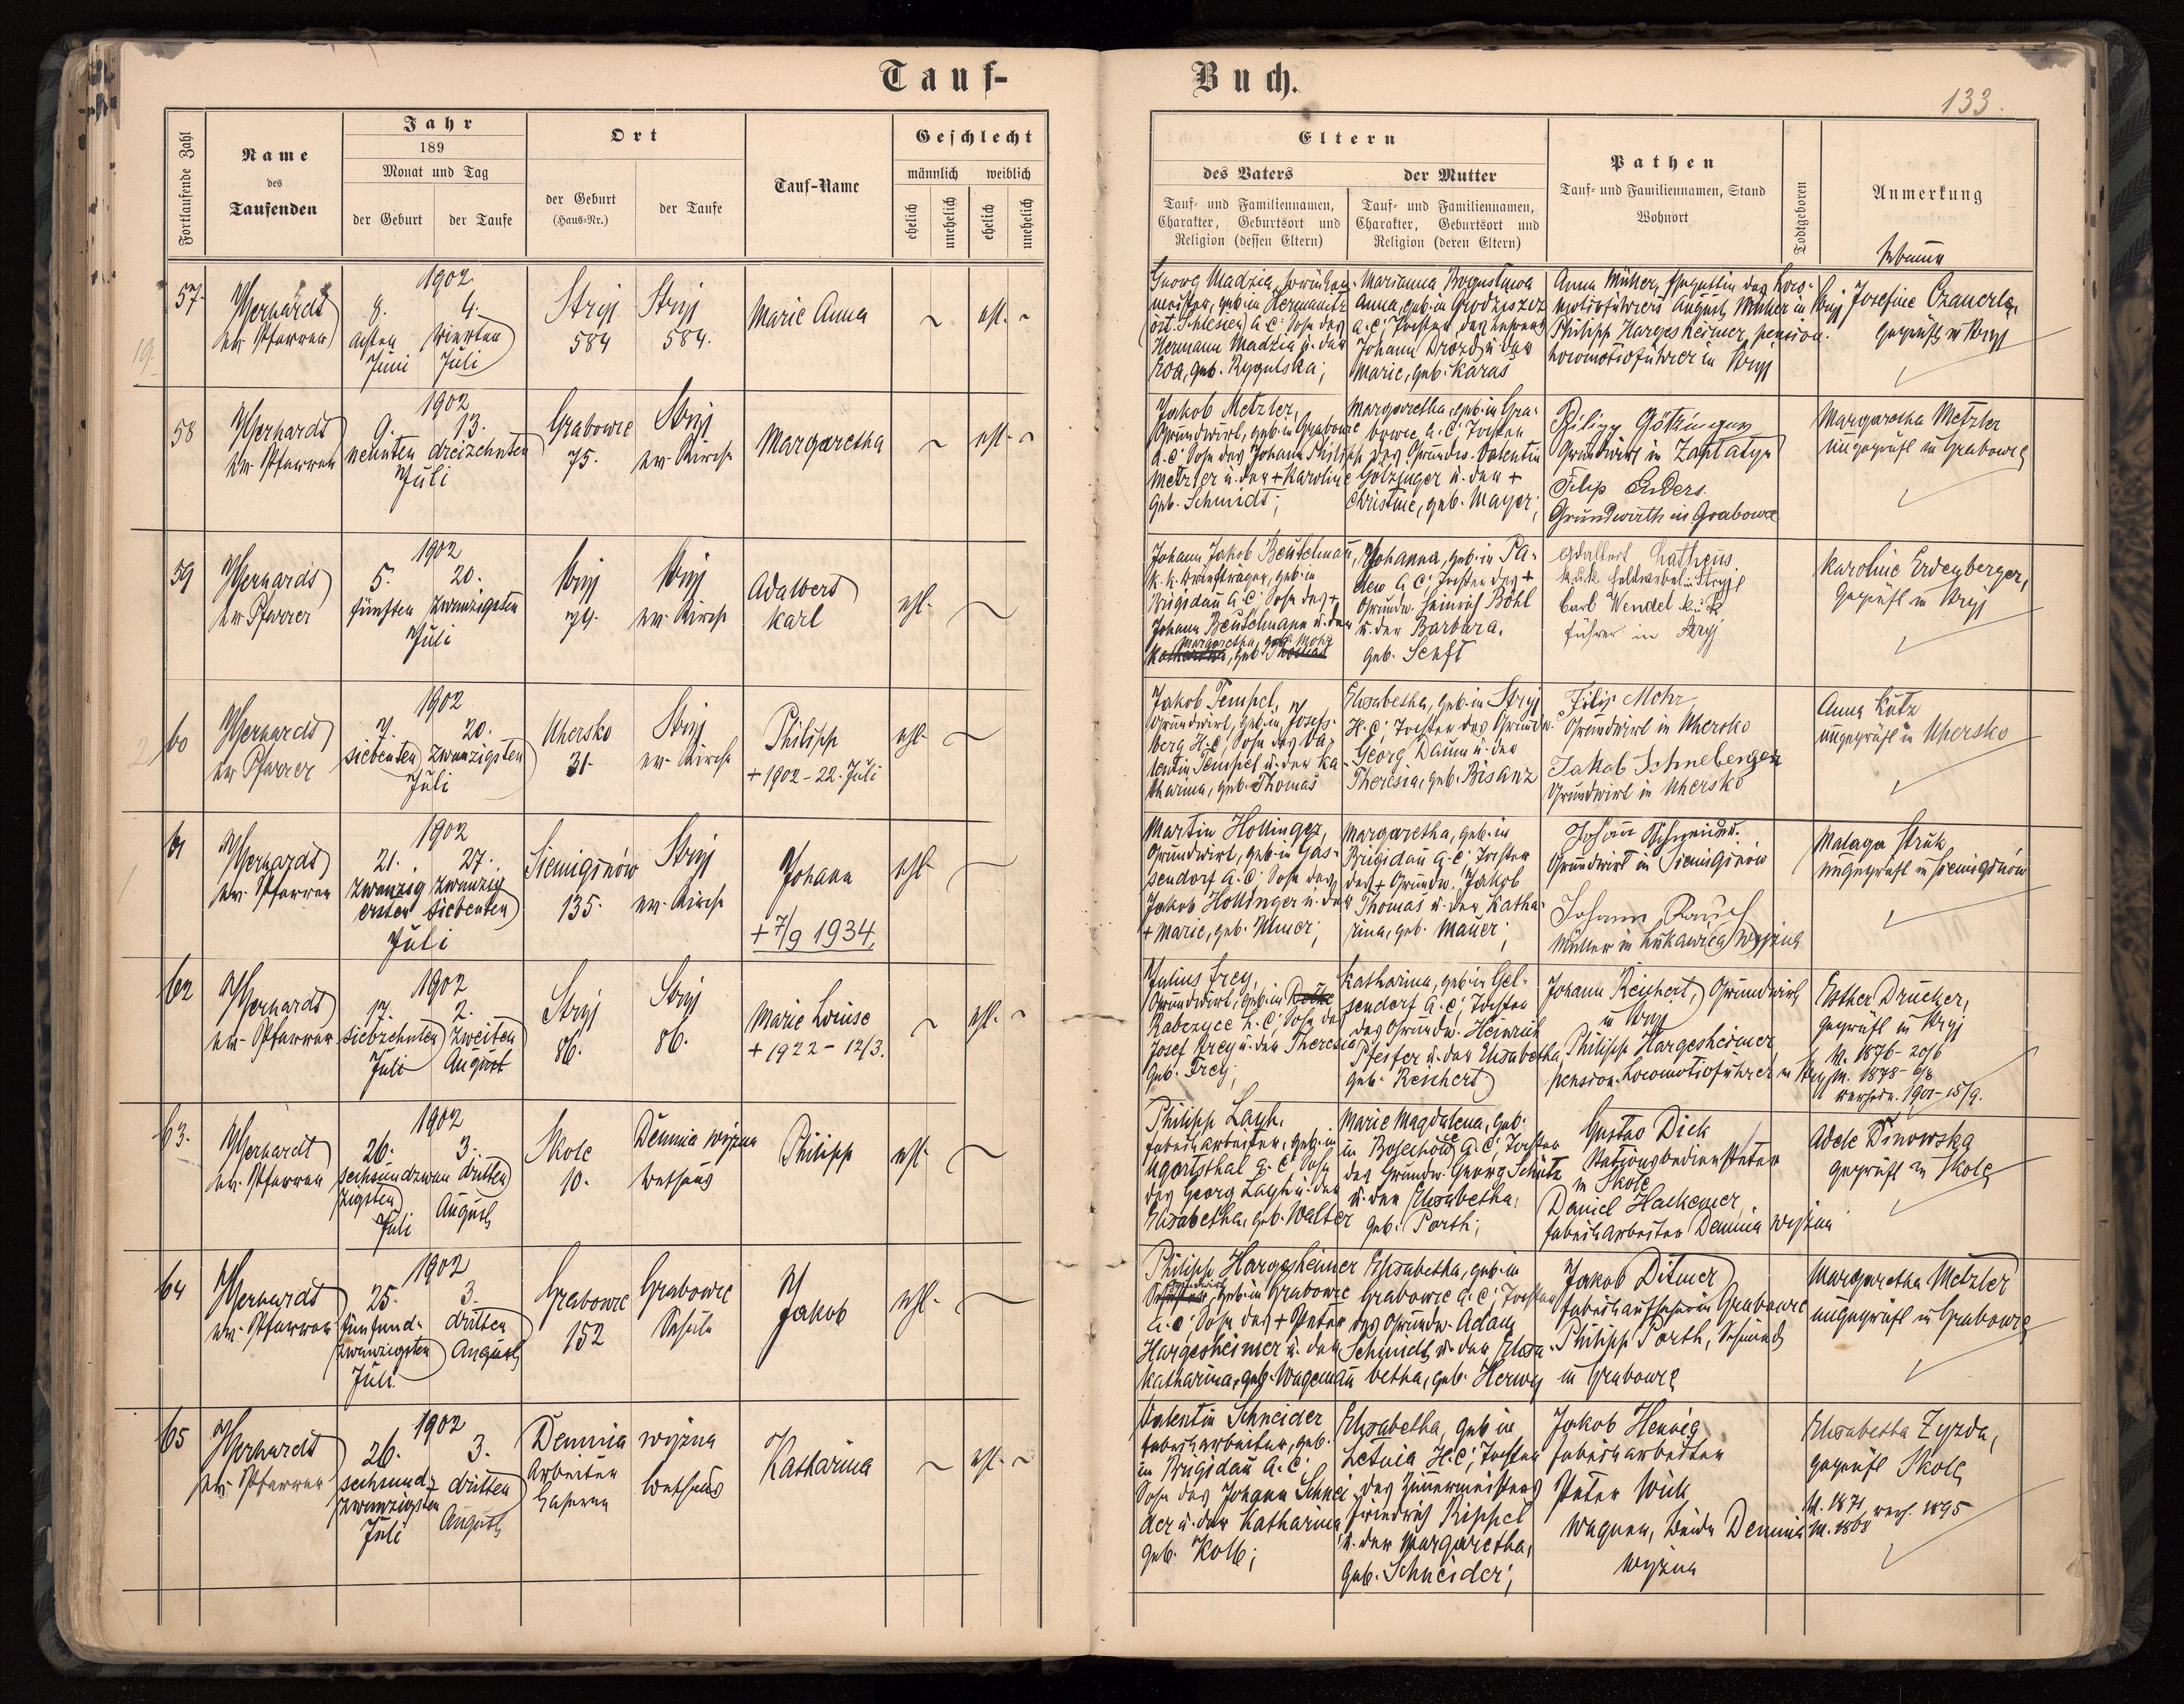 Tauf-
Buch.
133.
Fortlaufende Zahl
Name
des
Taufenden
Jahr
189
Monat und Tag
der Geburt
der Taufe
Ort
der Geburt
(Haus-Nr.)
der Taufe
Tauf-Name
Geschlecht
männlich
weiblich
ehelich
unehelich
ehelich
unehelich
Eltern
des Vaters
der Mutter
Tauf- und Familiennamen,
Charakter, Geburtsort und
Religion (dessen Eltern)
Tauf- und Familiennamen,
Charakter, Geburtsort und
Religion (deren Eltern)
Pathen
Tauf- und Familiennamen, Stand
Wohnort
Todtgeboren
Anmerkung
Hebamme
57.
ev. Pfarrer
1902
8.
achten
Juni
4.
vierten
Juli
Stryj
584
Stryj
584.
Marie Anna
ehl.
Georg Madzia,
meister, geb. in
öst. Schlesien A. C.; Sohn des
Hermann Madzia u. der
Eva, geb.
Marianna
Anna, geb. in
A. C.; Tochter des
Johann Drozd u. der
Marie, geb. Karas
Anna Müller, Gattin des Loco-
motivführers August Müller in Stryj
Philipp Hargesheimer, pension.
Locomotivführer in Stryj
Josefine
geprüft in Stryj
58
ev. Pfarrer
1902
9.
neunten
13.
dreizehnten
Juli
Grabowce
75.
Stryj
ev. Kirche
Margaretha
ehl.
Jakob Metzler,
Grundwirt, geb. in Grabowce
A. C.; Sohn des Johann Philipp
Metzler u. der + Karoline
geb. Schmidt;
Margaretha, geb. in Gra-
bowce A. C.; Tochter
des Grundw. Valentin
Götzinger u. der +
Christine, geb. Mayer;
Grundwirt in Zaplatyn
Filip Enders
Grundwirth in Grabowce
Margaretha Metzler
ungeprüft in Grabowce
59
ev. Pfarrer
1902
5.
fünften
20.
zwanzigsten
Juli
Stryj
Stryj
ev. Kirche
Adalbert
Karl
ehl.
Johann Jakob Beutelmann,
k. k. Briefträger, geb. in
Brigidau A. C.; Sohn des +
Johann Beutelmann u. der
Margaretha, geb. Mohr
Johanna, geb. in Pa-
dew A. C.; Tochter des +
Grundw. Heinrich Böhl
u. der Barbara,
geb. Senft
Adalbert
k.u.k. Feldwebel in Stryj
Carl Wendel k.u.k.
führer in Stryj
Karoline Erdenberger,
geprüft in Stryj
60
ev. Pfarrer
1902
7.
siebenten
20.
zwanzigsten
Juli
Uhersko
31.
Stryj
ev. Kirche
Philipp
+ 1902 - 22. Juli
ehl.
Jakob Tempel,
Grundwirt, geb. in Josefs-
berg H. C.; Sohn des Va-
lentin Tempel u. der Ka-
tharina, geb. Thomas
Elisabetha, geb. in Stryj
H. C.; Tochter des Grundw.
Georg Daum u. der
Theresia, geb. Bisanz
Filip Mohr
Grundwirt in Uhersko
Jakob Schneberger
Grundwirt in Uhersko
Anna Kutz
ungeprüft in Uhersko
61
ev. Pfarrer
1902
21.
zwanzig
ersten
27.
zwanzig
siebenten
Juli
Siemiginów
135.
Stryj
ev. Kirche
Johann
+ 7/9 1934.
ehl.
Martin Hollinger,
Grundwirt, geb. in Gas-
sendorf A. C.; Sohn des
Jakob Hollinger u. der
+ Marie, geb. Ulmer;
Margaretha, geb. in
Brigidau A. C.; Tochter
des + Grundw. Jakob
Thomas u. der Katha-
rina, geb. Mauer;
Grundwirt in Siemiginów
Johann Rauch
Müller in Lukawica wyżna
Malaga Struk
ungeprüft in Siemiginów
62
ev. Pfarrer
1902
17.
siebzehnten
Juli
2.
zweiten
August
Stryj
86.
Stryj
86.
Marie Louise
+ 1922 - 12/3.
ehl.
Julius Frey,
Grundwirt, geb. in
Kabczyce A. C.; Sohn des
Josef Frey u. der Theresia
geb. Frey;
Katharina, geb. in Gel-
sendorf A. C.; Tochter
des Grundw. Heinrich
Pfeifer u. der Elisabetha,
geb. Reichert
Johann Reichert, Grundwirt
in Stryj
Philipp Hargesheimer
pension. Locomotivführer in Stryj
Esther Drucker,
geprüft in Stryj
V. 1876 - 20/6
M. 1878 - 6/8
verehe. 1901 - 15/9.
63.
ev. Pfarrer
1902
26.
sechsundzwan
zigsten
Juli
3.
dritten
August
Skole
10.
Demnia wyżna
Bethaus
Philipp
ehl.
Philipp
Fabrikarbeiter, geb. in
Ugartsthal A. C.; Sohn
des Georg
Elisabetha, geb. Walter
Marie Magdalena, geb.
in Bolechow A. C.; Tochter
des Grundw. Georg Schütz
u. der Elisabetha,
geb. Porth;
Gustav Dick
Stationsbediensteter
in Skole
Daniel Halkemer,
Fabrikarbeiter Demnia wyżna
Adele Dinowska
geprüft in Skole
64
ev. Pfarrer
1902
25.
fünfund-
zwanzigsten
Juli
3.
dritten
August
Grabowce
152
Grabowce
Schule
Jakob
ehl.
Philipp Hargesheimer
Grundwirt, geb. in Grabowce
A. C.; Sohn des + Peter
Hargesheimer u. der
Katharina, geb. Wagemann
Elisabetha, geb. in
Grabowce A. C.; Tochter
des Grundw. Adam
Schmidt u. der Elisa-
betha, geb. Herwy
Jakob Ditmer
Fabrikaufseher in Grabowce
Philipp Porth, Schmied
in Grabowce
Margaretha Metzler
ungeprüft in Grabowce
65
ev. Pfarrer
1902
26.
sechsund-
zwanzigsten
Juli
3.
dritten
August
Demnia wyżna
Arbeiter
Kaserne
Bethaus
Katharina
ehl.
Valentin Schneider
Fabrikarbeiter, geb.
in Brigidau A. C.
Sohn des Johann Schnei-
der u. der Katharina
geb. Kolb;
Elisabetha, geb. in
Letnia H. C.; Tochter
des Zimmermeisters
Friedrich Rippel
u. der Margaretha,
geb. Schneider;
Jakob Hennig
Fabrikarbeiter
Peter Wick
Wagner, beide Demnia
wyżna
Elisabetha Zyrda,
geprüft Skole
V. 1871
M. 1868 verh. 1895